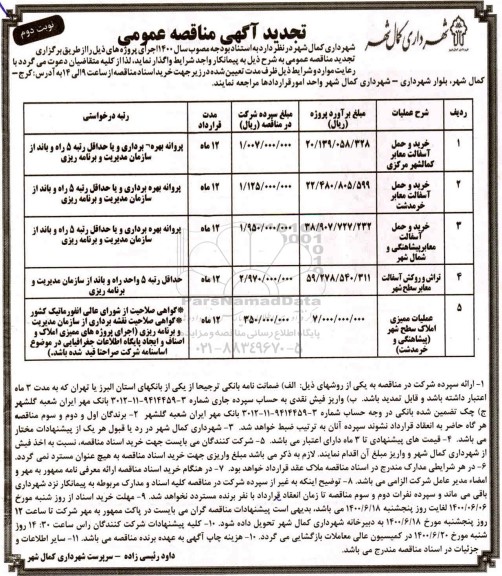 شهرداری کمال شهر
تجدید آگهی مناقصه عمومی
نوبت دوم
شهرداری کمال شهر در نظر دارد به استناد بودجه مصوب سال ۱۴۰۰ اجرای پروژه های ذیل را از طریق برگزاری
تجدید مناقصه عمومی به شرح ذیل به پیمانکار واجد شرایط واگذار نماید، لذا از کلیه متقاضیان دعوت می گردد با
رعایت موارد و شرایط ذیل ظرف مدت تعیین شده در زیر جهت خرید اسناد مناقصه از ساعت ۹ الی ۱۴ به آدرس: کرج –
کمال شهر، بلوار شهرداری – شهرداری کمال شهر واحد امور قراردادها مراجعه نمایند.
ردیف شرح عملیات مبلغ برآورد پروژه (ریال) مبلغ سپرده شرکت در مناقصه (ریال) مدت قرارداد رتبه درخواستی
۱ خرید و حمل آسفالت معابر کمالشهر مرکزی ۲۰/۱۳۹/۰۵۸/۳۲۸ ۱/۰۰۷/۰۰۰/۰۰۰ ۱۲ ماه پروانه بهره¬ برداری و یا حداقل رتبه ۵ راه و باند از سازمان مدیریت و برنامه ریزی
۲ خرید و حمل آسفالت معابر خرمدشت ۲۲/۴۸۰/۸۰۵/۵۹۹ ۱/۱۲۵/۰۰۰/۰۰۰ ۱۲ ماه پروانه بهره برداری و یا حداقل رتبه ۵ راه و باند از سازمان مدیریت و برنامه ریزی
۳ خرید و حمل آسفالت معابر پیشاهنگی و شمال شهر ۳۸/۹۰۷/۷۲۷/۲۳۲ ۱/۹۵۰/۰۰۰/۰۰۰ ۱۲ ماه پروانه بهره برداری و یا حداقل رتبه ۵ راه و باند از سازمان مدیریت و برنامه ریزی
۴ تراش و روکش آسفالت معابر سطح شهر ۵۹/۲۷۸/۵۴۰/۳۱۱ ۲/۹۷۰/۰۰۰/۰۰۰ ۱۲ ماه حداقل رتبه ۵ واحد راه و باند از سازمان مدیریت و برنامه ریزی
۵ عملیات ممیزی املاک سطح شهر (پیشاهنگی و خرمدشت) ۷/۰۰۰/۰۰۰/۰۰۰ ۳۵۰/۰۰۰/۰۰۰ ۱۲ ماه *گواهی صلاحیت از شورای عالی انفورماتیک کشور *گواهی صلاحیت نقشه برداری از سازمان مدیریت و برنامه ریزی (اجرای پروژه های ممیزی املاک و اصناف و ایجاد پایگاه اطلاعات جغرافیایی در موضوع اساسنامه شرکت صراحتا قید شده باشد.)
ParsNamadData
۰۲۱-۸۸۳۴۹۶۷۰-۵
۱- ارائه سپرده شرکت در مناقصه به یکی از روشهای ذیل: الف) ضمانت نامه بانکی ترجیحا از یکی از بانکهای استان البرز یا تهران که به مدت ۳ ماه
اعتبار داشته باشد و قابل تمدید باشد. ب) واریز فیش نقدی به حساب سپرده جاری شماره ۳-۹۴۱۴۴۵۹-۱۱-۳۰۱۲ بانک مهر ایران شعبه گلشهر
ج) چک تضمین شده بانکی در وجه حساب شماره ۳-۹۴۱۴۴۵۹-۱۱-۳۰۱۲ بانک مهر ایران شعبه گلشهر ۲- برندگان اول و دوم و سوم مناقصه
هر گاه حاضر به انعقاد قرارداد نشوند سپرده آنان به ترتیب ضبط خواهد شد. ۳- شهرداری کمال شهر در رد یا قبول هر یک از پیشنهادات مختار
می باشد. ۴- قیمت های پیشنهادی تا ۳ ماه دارای اعتبار می باشد. ۵- شرکت کنندگان می بایست جهت خرید اسناد مناقصه، نسبت به اخذ فیش
از شهرداری کمال شهر و واریز مبلغ آن اقدام نمایند. لازم به ذکر می باشد مبلغ واریزی جهت خرید اسناد مناقصه به هیچ عنوان مسترد نمی گردد.
۶- در هر شرایطی مدارک مندرج در اسناد مناقصه ملاک عقد قرارداد خواهد بود. ۷- در هنگام خرید اسناد مناقصه ارائه معرفی نامه ممهور به مهر و
امضاء مدیر عامل شرکت الزامی می باشد. ۸- توضیح اینکه به غیر از سپرده شرکت در مناقصه کلیه اسناد و مدارک مربوطه به پیمانکار نزد شهرداری
باقی می ماند و سپرده نفرات دوم و سوم مناقصه تا زمان انعقاد قرارداد با نفر برنده مسترد نخواهد شد. ۹- مهلت خرید اسناد از روز شنبه مورخ
۱۴۰۰/۶/۰۶ لغایت روز پنجشنبه مورخ ۱۴۰۰/۶/۱۸ می باشد، بدیهی است پیشنهادات مناقصه گران می بایست در پاکت ممهور به مهر شرکت تا ساعت ۱۲
روز پنجشنبه مورخ ۱۴۰۰/۶/۱۸ به دبیرخانه شهرداری کمال شهر تحویل داده شود. ۱۰- کلیه پیشنهادات شرکت کنندگان راس ساعت ۱۴:۳۰ روز
شنبه مورخ ۱۴۰۰/۶/۲۰ در کمیسیون عالی معاملات بازگشایی می گردد. ۱۰- هزینه چاپ آگهی به عهده برنده مناقصه می باشد. ۱۱- سایر اطلاعات و
جزئیات در اسناد مناقصه مندرج می باشد.
داود رئیسی زاده – سرپرست شهرداری کمال شهر